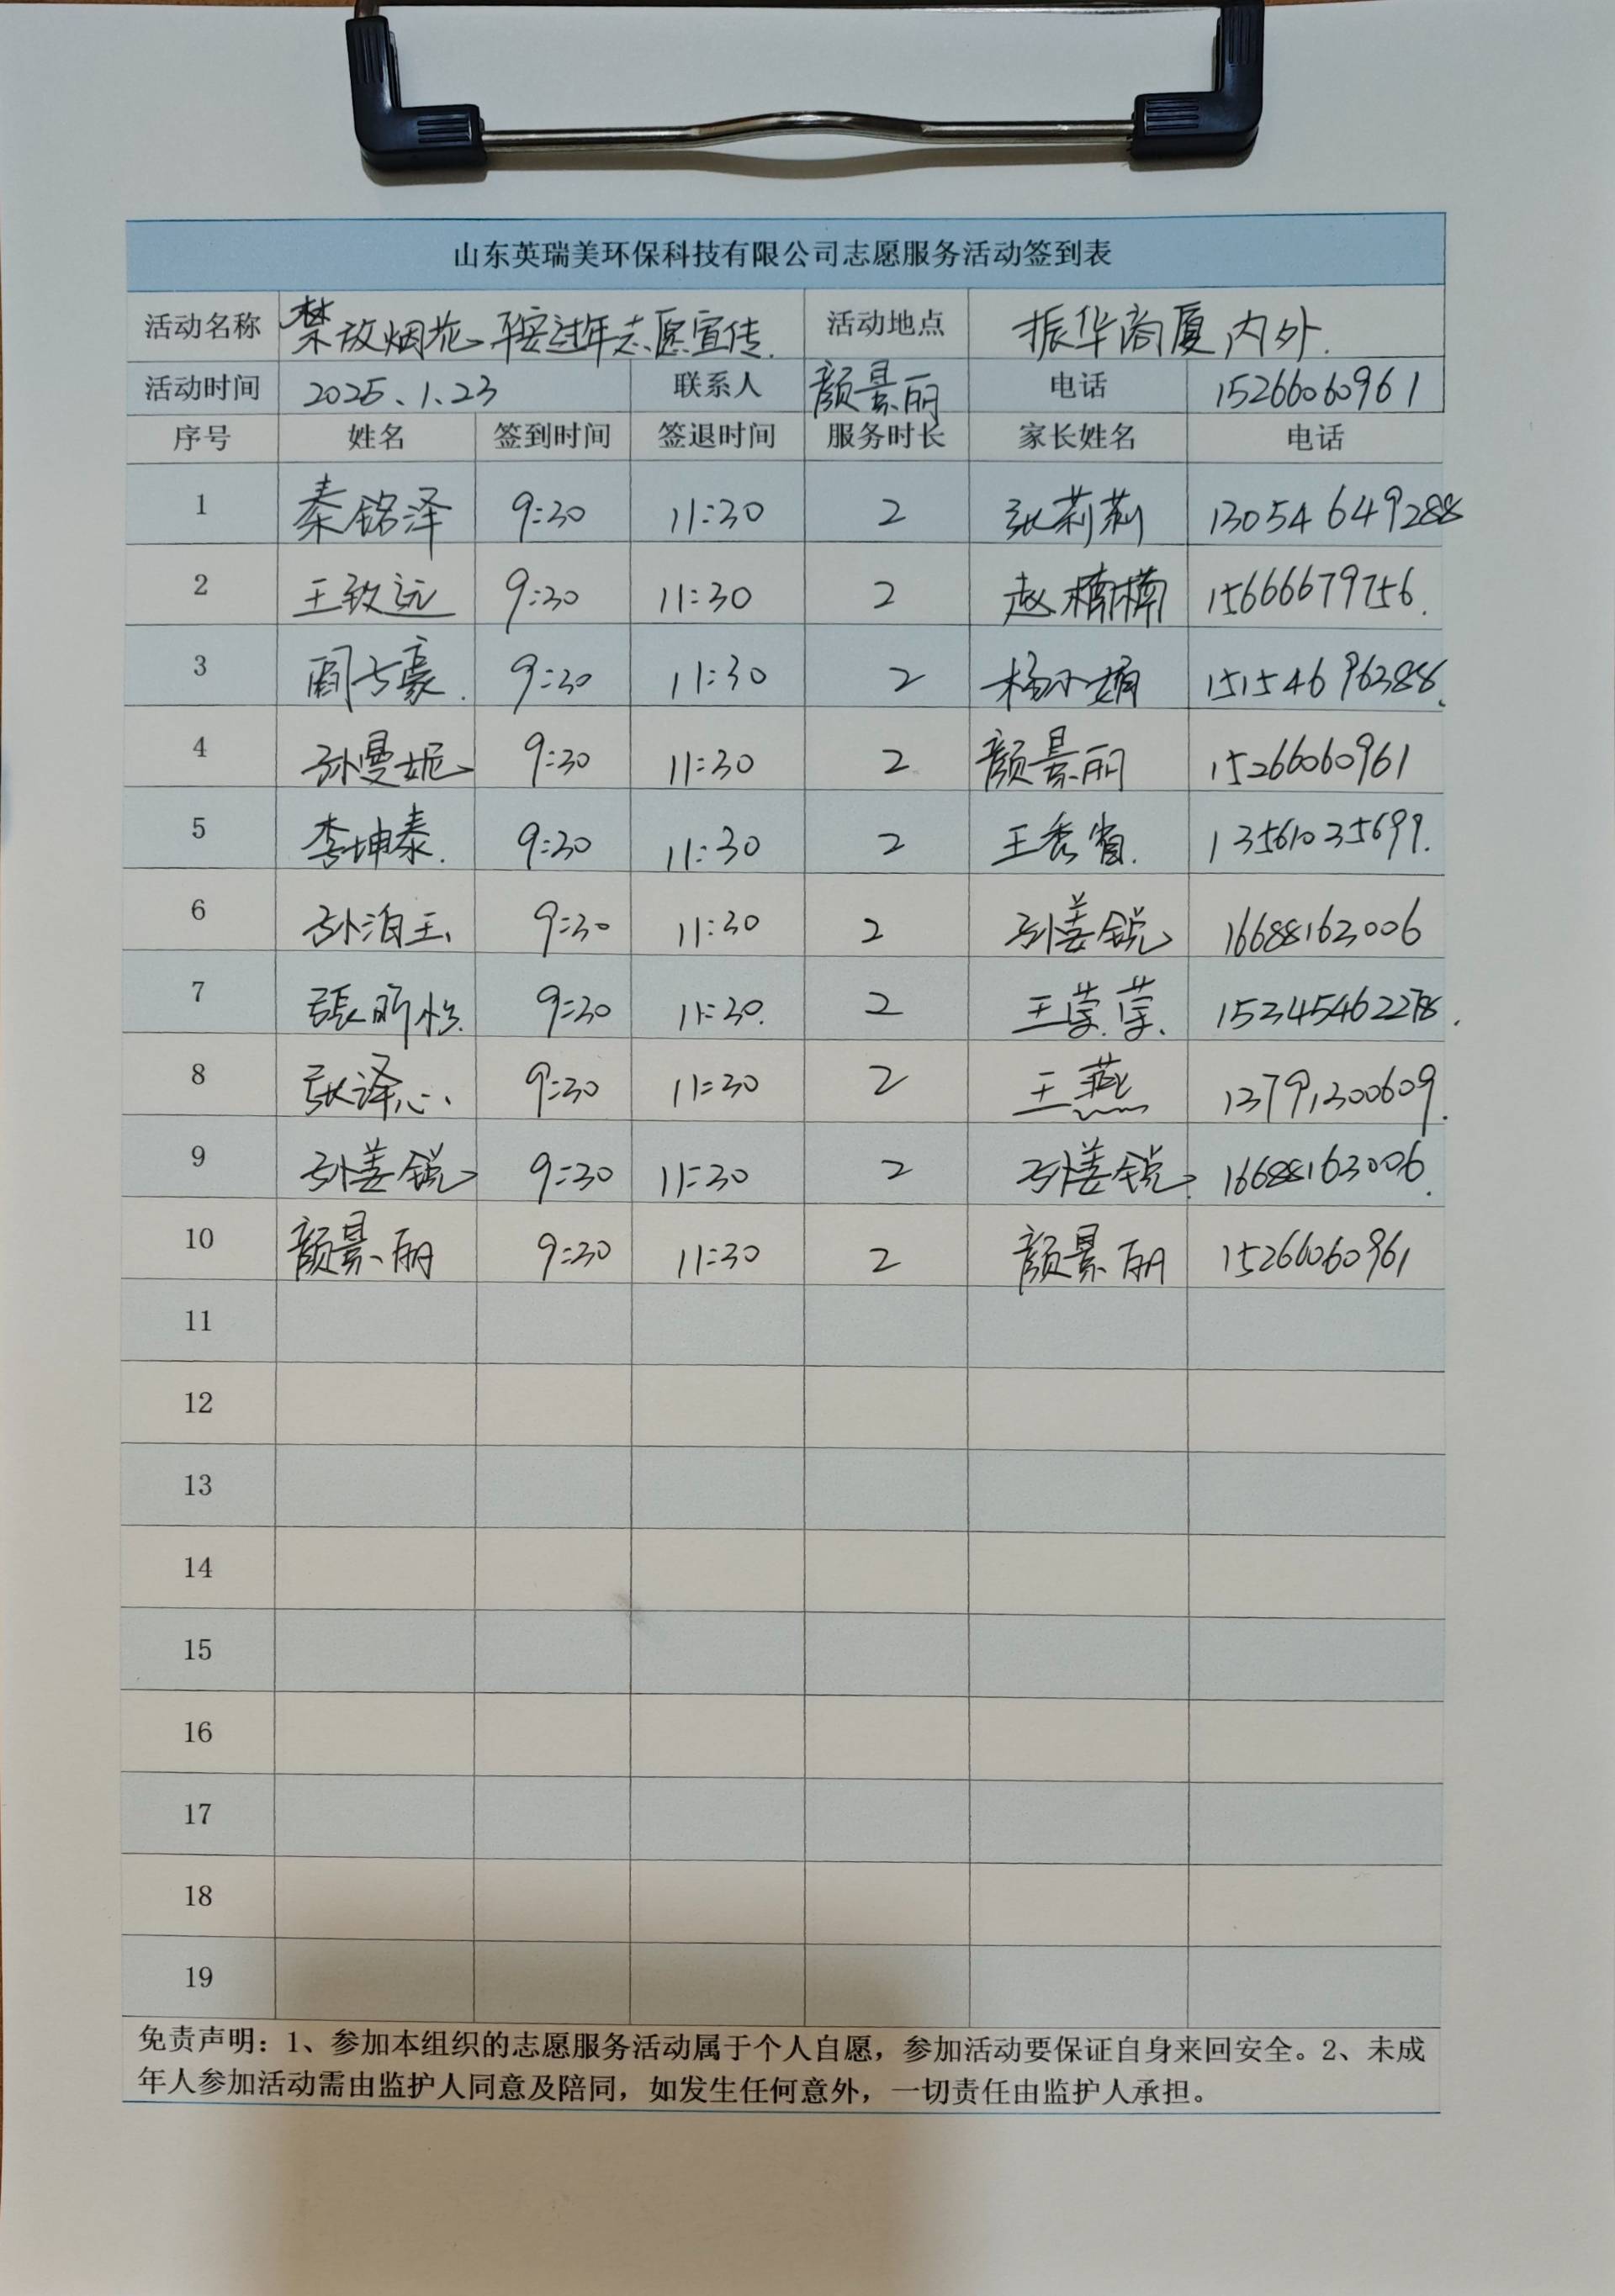 山东英瑞美环保科技有限公司志愿服务活动签到表
活动名称 禁放烟花 平安过年志愿宣传. 活动地点 振华商厦内外.
活动时间 2025.1.23 联系人 颜景丽 电话 15266060961
序号 姓名 签到时间 签退时间 服务时长 家长姓名 电话
1 秦铭泽 9:30 11:30 2 张莉莉 13054649288
2 王致远 9:30 11:30 2 赵楠楠 15666679756.
3 9:30 11:30 2 杨小娟 15154696388.
4 孙曼妮 9:30 11:30 2 颜景丽 15266060961
5 李坤泰. 9:30 11:30 2 王秀省. 13561035699.
6 孙泊玉 9:30 11:30 2 孙姜锐 16688163006
7 9:30 11:30. 2 15345462278.
8 张泽心 9:30 11:30 2 王燕 13791300609.
9 孙姜锐 9:30 11:30 2 孙姜锐. 16688163006.
10 颜景丽 9:30 11:30 2 颜景丽 15266060961
11
12
13
14
15
16
17
18
19
免责声明：1、参加本组织的志愿服务活动属于个人自愿，参加活动要保证自身来回安全。2、未成
年人参加活动需由监护人同意及陪同，如发生任何意外，一切责任由监护人承担。